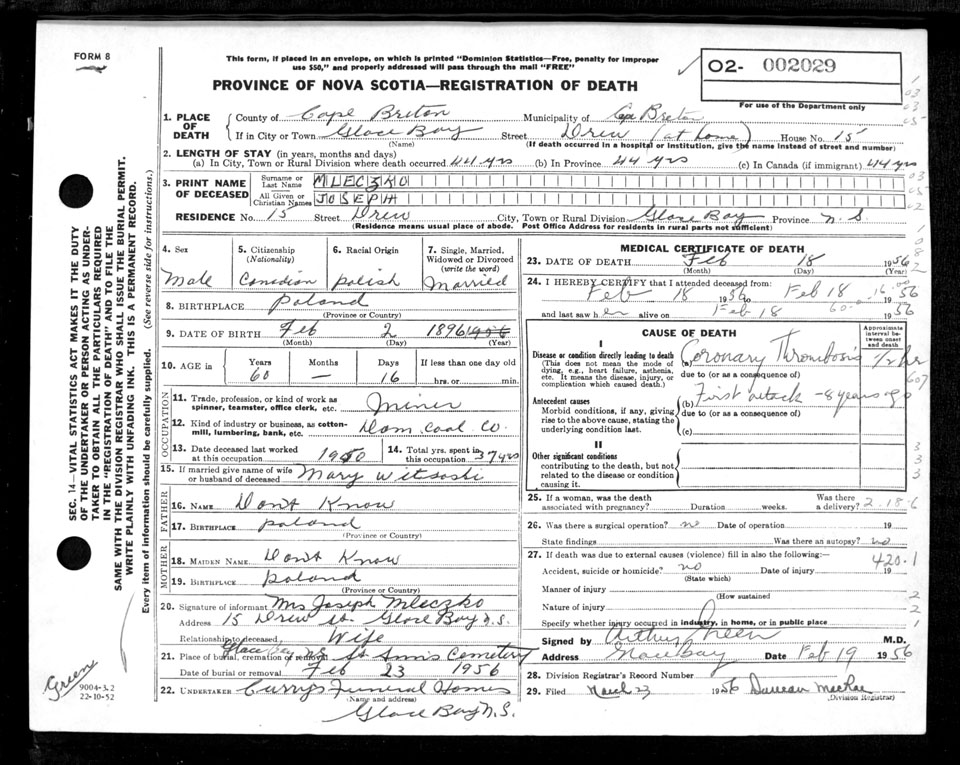 FORM 8
This form, if placed in an envelope, on which is printed "Dominion Statistics—Free, penalty for improper
use $50," and properly addressed will pass through the mail "FREE"
PROVINCE OF NOVA SCOTIA—REGISTRATION OF DEATH
02- 002029
For use of the Department only
1. PLACE OF DEATH
County of Cape Breton Municipality of Cape Breton
If in City or Town Glace Bay Street Drew (at home) House No. 15
(Name) (If death occurred in a hospital or institution, give the name instead of street and number)
2. LENGTH OF STAY (in years, months and days)
(a) In City, Town or Rural Division where death occurred 44 yrs (b) In Province 44 yrs (c) In Canada (if immigrant) 44 yrs
3. PRINT NAME OF DECEASED
Surname or Last Name MLECZKO
All Given or Christian Names JOSEPH
RESIDENCE No. 15 Street Drew City, Town or Rural Division Glace Bay Province N.S
(Residence means usual place of abode. Post Office Address for residents in rural parts not sufficient)
4. Sex Male
5. Citizenship (Nationality) Canadian
6. Racial Origin Polish
7. Single, Married, Widowed or Divorced (write the word) Married
8. BIRTHPLACE Poland
(Province or Country)
9. DATE OF BIRTH Feb 2 1896
(Month) (Day) (Year)
10. AGE in Years 60 Months — Days 16 If less than one day old
hrs. or min.
OCCUPATION
11. Trade, profession, or kind of work as spinner, teamster, office clerk, etc. Miner
12. Kind of industry or business, as cotton-mill, lumbering, bank, etc. Dom. Coal Co.
13. Date deceased last worked at this occupation 1950
14. Total yrs. spent in this occupation 37 yrs
15. If married give name of wife or husband of deceased Mary
FATHER
16. NAME Don't Know
17. BIRTHPLACE Poland
(Province or Country)
MOTHER
18. MAIDEN NAME Don't Know
19. BIRTHPLACE Poland
(Province or Country)
20. Signature of informant Mrs Joseph Mleczko
Address 15 Drew St. Glace Bay N.S.
Relationship to deceased Wife
21. Place of burial, cremation or removal Glace Bay N.S. St Anns Cemetery
Date of burial or removal Feb 23 1956
22. UNDERTAKER Curry's Funeral Homes
(Name and address)
Glace Bay N.S.
MEDICAL CERTIFICATE OF DEATH
23. DATE OF DEATH Feb 18 1956
(Month) (Day) (Year)
24. I HEREBY CERTIFY that I attended deceased from:
Feb 18 1956 to Feb 18 1956
and last saw h alive on Feb 18 1956
CAUSE OF DEATH
Approximate interval between onset and death
I
Disease or condition directly leading to death
(This does not mean the mode of dying, e.g., heart failure, asthenia, etc. It means the disease, injury, or complication which caused death.)
(a) Coronary Thrombosis 1/2 hr
due to (or as a consequence of)
Antecedent causes
Morbid conditions, if any, giving rise to the above cause, stating the underlying condition last.
(b) First attack - 8 years ago
due to (or as a consequence of)
(c)
II
Other significant conditions
contributing to the death, but not related to the disease or condition causing it.
25. If a woman, was the death associated with pregnancy? Duration weeks. Was there a delivery? 2-18-6
26. Was there a surgical operation? no Date of operation 19
State findings Was there an autopsy? no
27. If death was due to external causes (violence) fill in also the following:—
420.1
Accident, suicide or homicide? no Date of injury 19
(State which)
Manner of injury
(How sustained
Nature of injury
Specify whether injury occurred in industry, in home, or in public place
Signed by Arthur Green M.D.
Address Glace Bay Date Feb 19 1956
28. Division Registrar's Record Number
29. Filed March 23 1956 Duncan MacRae
(Division Registrar)
SEC. 14—VITAL STATISTICS ACT MAKES IT THE DUTY
OF THE UNDERTAKER OR PERSON ACTING AS UNDER-
TAKER TO OBTAIN ALL THE PARTICULARS REQUIRED
IN THE "REGISTRATION OF DEATH" AND TO FILE THE
SAME WITH THE DIVISION REGISTRAR WHO SHALL ISSUE THE BURIAL PERMIT.
WRITE PLAINLY WITH UNFADING INK. THIS IS A PERMANENT RECORD.
Every item of information should be carefully supplied. (See reverse side for instructions.)
Green
9004-3.2
22-10-52